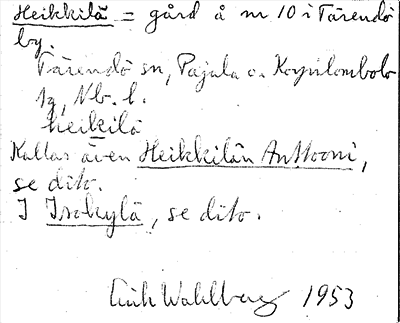 Heikkilä = gård å nr 10 i Tärendö
by.
Tärendö sn, Pajala o. Korpilombolo
tg, Nb. l.
heikilä
Kallas även Heikkilän Anttooni,
se dito.
I Isokylä, se dito.
Erik Wahlberg 1953